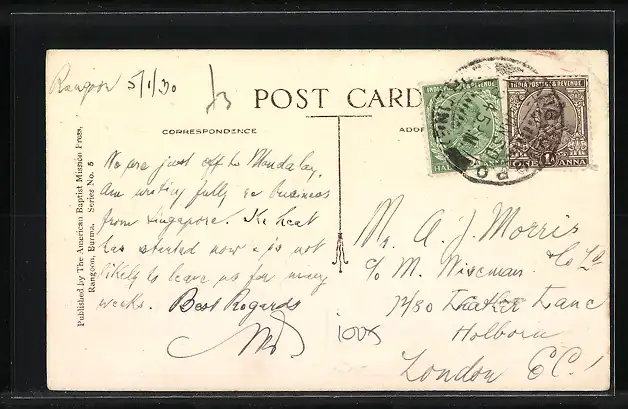 Rangoon 5/1/30
POST CARD
CORRESPONDENCE
INDIA POSTAGE & REVENUE
INDIA POSTAGE & REVENUE
ONE 1A ANNA
We are just off to Mandalay.
Am writing fully re business
from Singapore. The heat
has started now & is not
likely to leave us for many
weeks. Best Regards
Published by The American Baptist Mission Press,
Rangoon, Burma. Series No. 5
Mr. A. J. Morris
c/o M. Wiseman & Co Ld
Lane
Holborn
London E.C.1